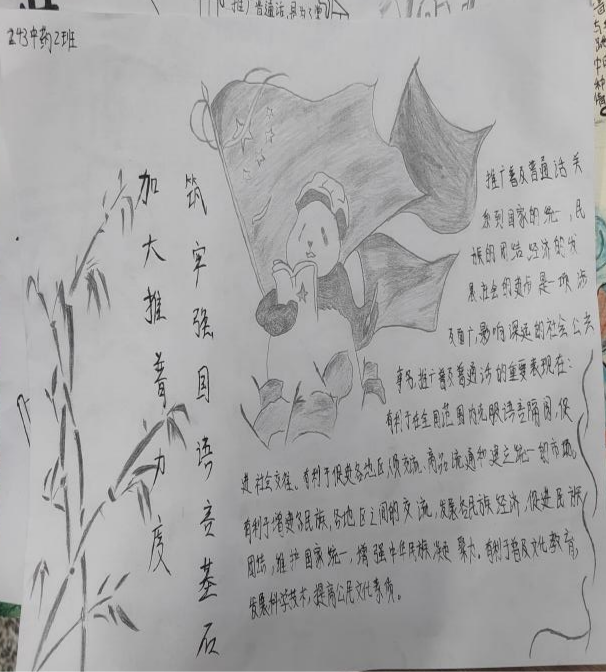 推广普通话,是
243中药2班
加大推普力度
筑牢强国语言基石
推广普及普通话关
系到国家的统一,民
族的团结经济的发
展社会的进步是一项涉
及面广,影响深远的社会公共
事务,推广普及普通话的重要表现在:
有利于在全国范围内克服语言隔阂,促
进社会交往、有利于促进各地区人员交流、商品流通和建立统一的市场。
有利于增进各民族,各地区之间的交流,发展各民族经济,促进民族
团结,维护国家统一,增强中华民族凝聚力。有利于普及文化教育,
发展科学技术,提高公民文化素质。